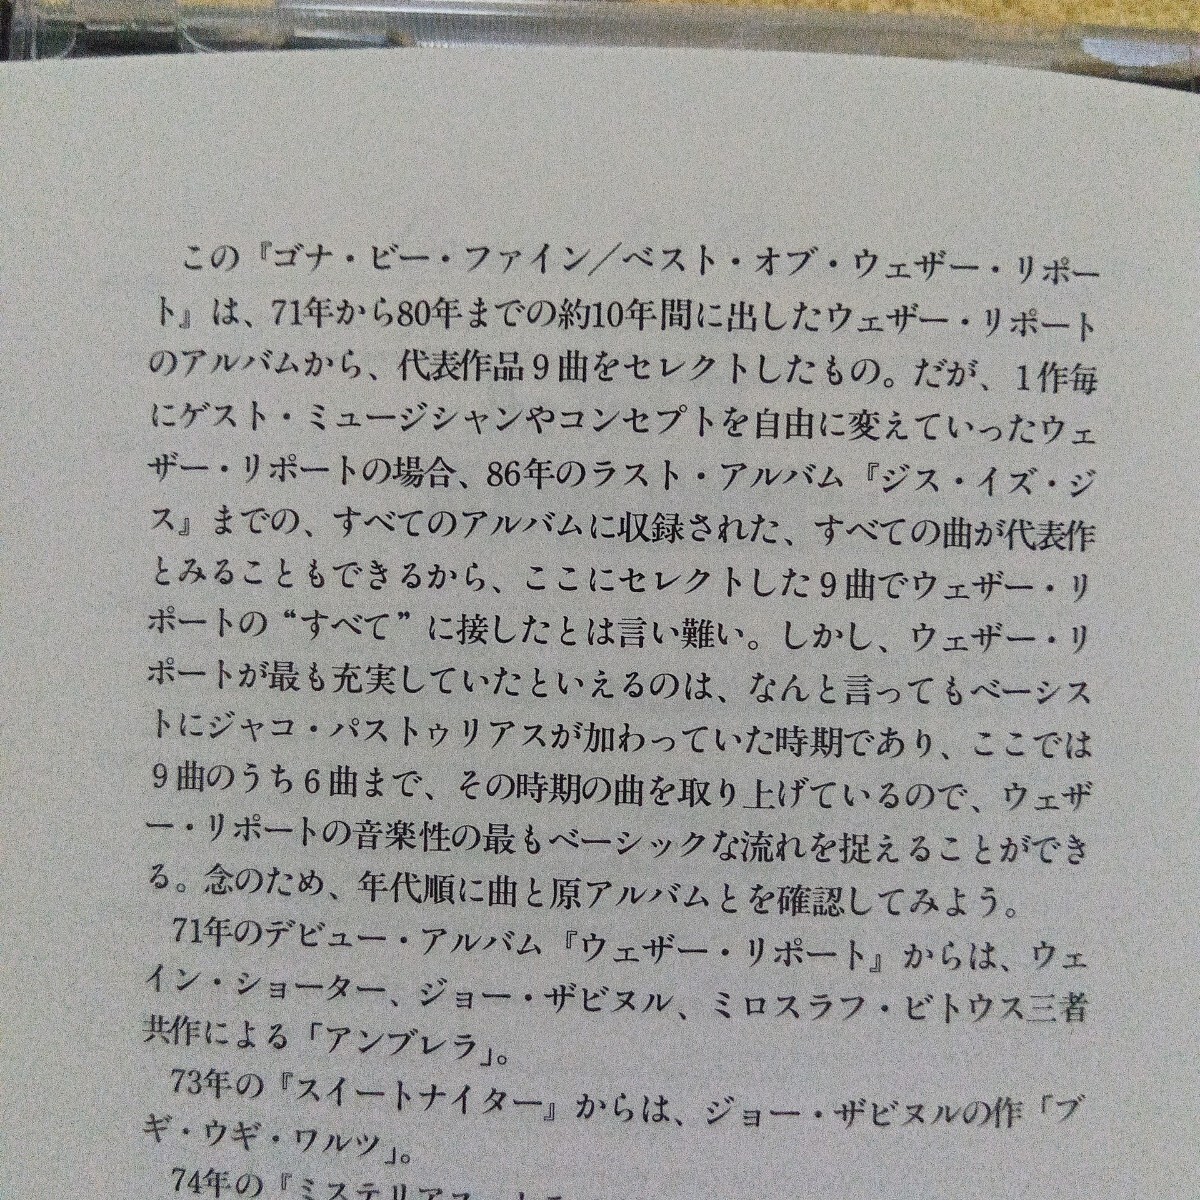 この『ゴナ・ビー・ファイン／ベスト・オブ・ウェザー・リポー
ト』は、71年から80年までの約10年間に出したウェザー・リポート
のアルバムから、代表作品９曲をセレクトしたもの。だが、１作毎
にゲスト・ミュージシャンやコンセプトを自由に変えていったウェ
ザー・リポートの場合、86年のラスト・アルバム『ジス・イズ・ジ
ス』までの、すべてのアルバムに収録された、すべての曲が代表作
とみることもできるから、ここにセレクトした９曲でウェザー・リ
ポートの“すべて”に接したとは言い難い。しかし、ウェザー・リ
ポートが最も充実していたといえるのは、なんと言ってもベーシス
トにジャコ・パストゥリアスが加わっていた時期であり、ここでは
９曲のうち６曲まで、その時期の曲を取り上げているので、ウェザ
ー・リポートの音楽性の最もベーシックな流れを捉えることができ
る。念のため、年代順に曲と原アルバムとを確認してみよう。
71年のデビュー・アルバム『ウェザー・リポート』からは、ウェ
イン・ショーター、ジョー・ザビヌル、ミロスラフ・ビトウス三者
共作による「アンブレラ」。
73年の『スイートナイター』からは、ジョー・ザビヌルの作「ブ
ギ・ウギ・ワルツ」。
74年の『ミステリアス・トラ